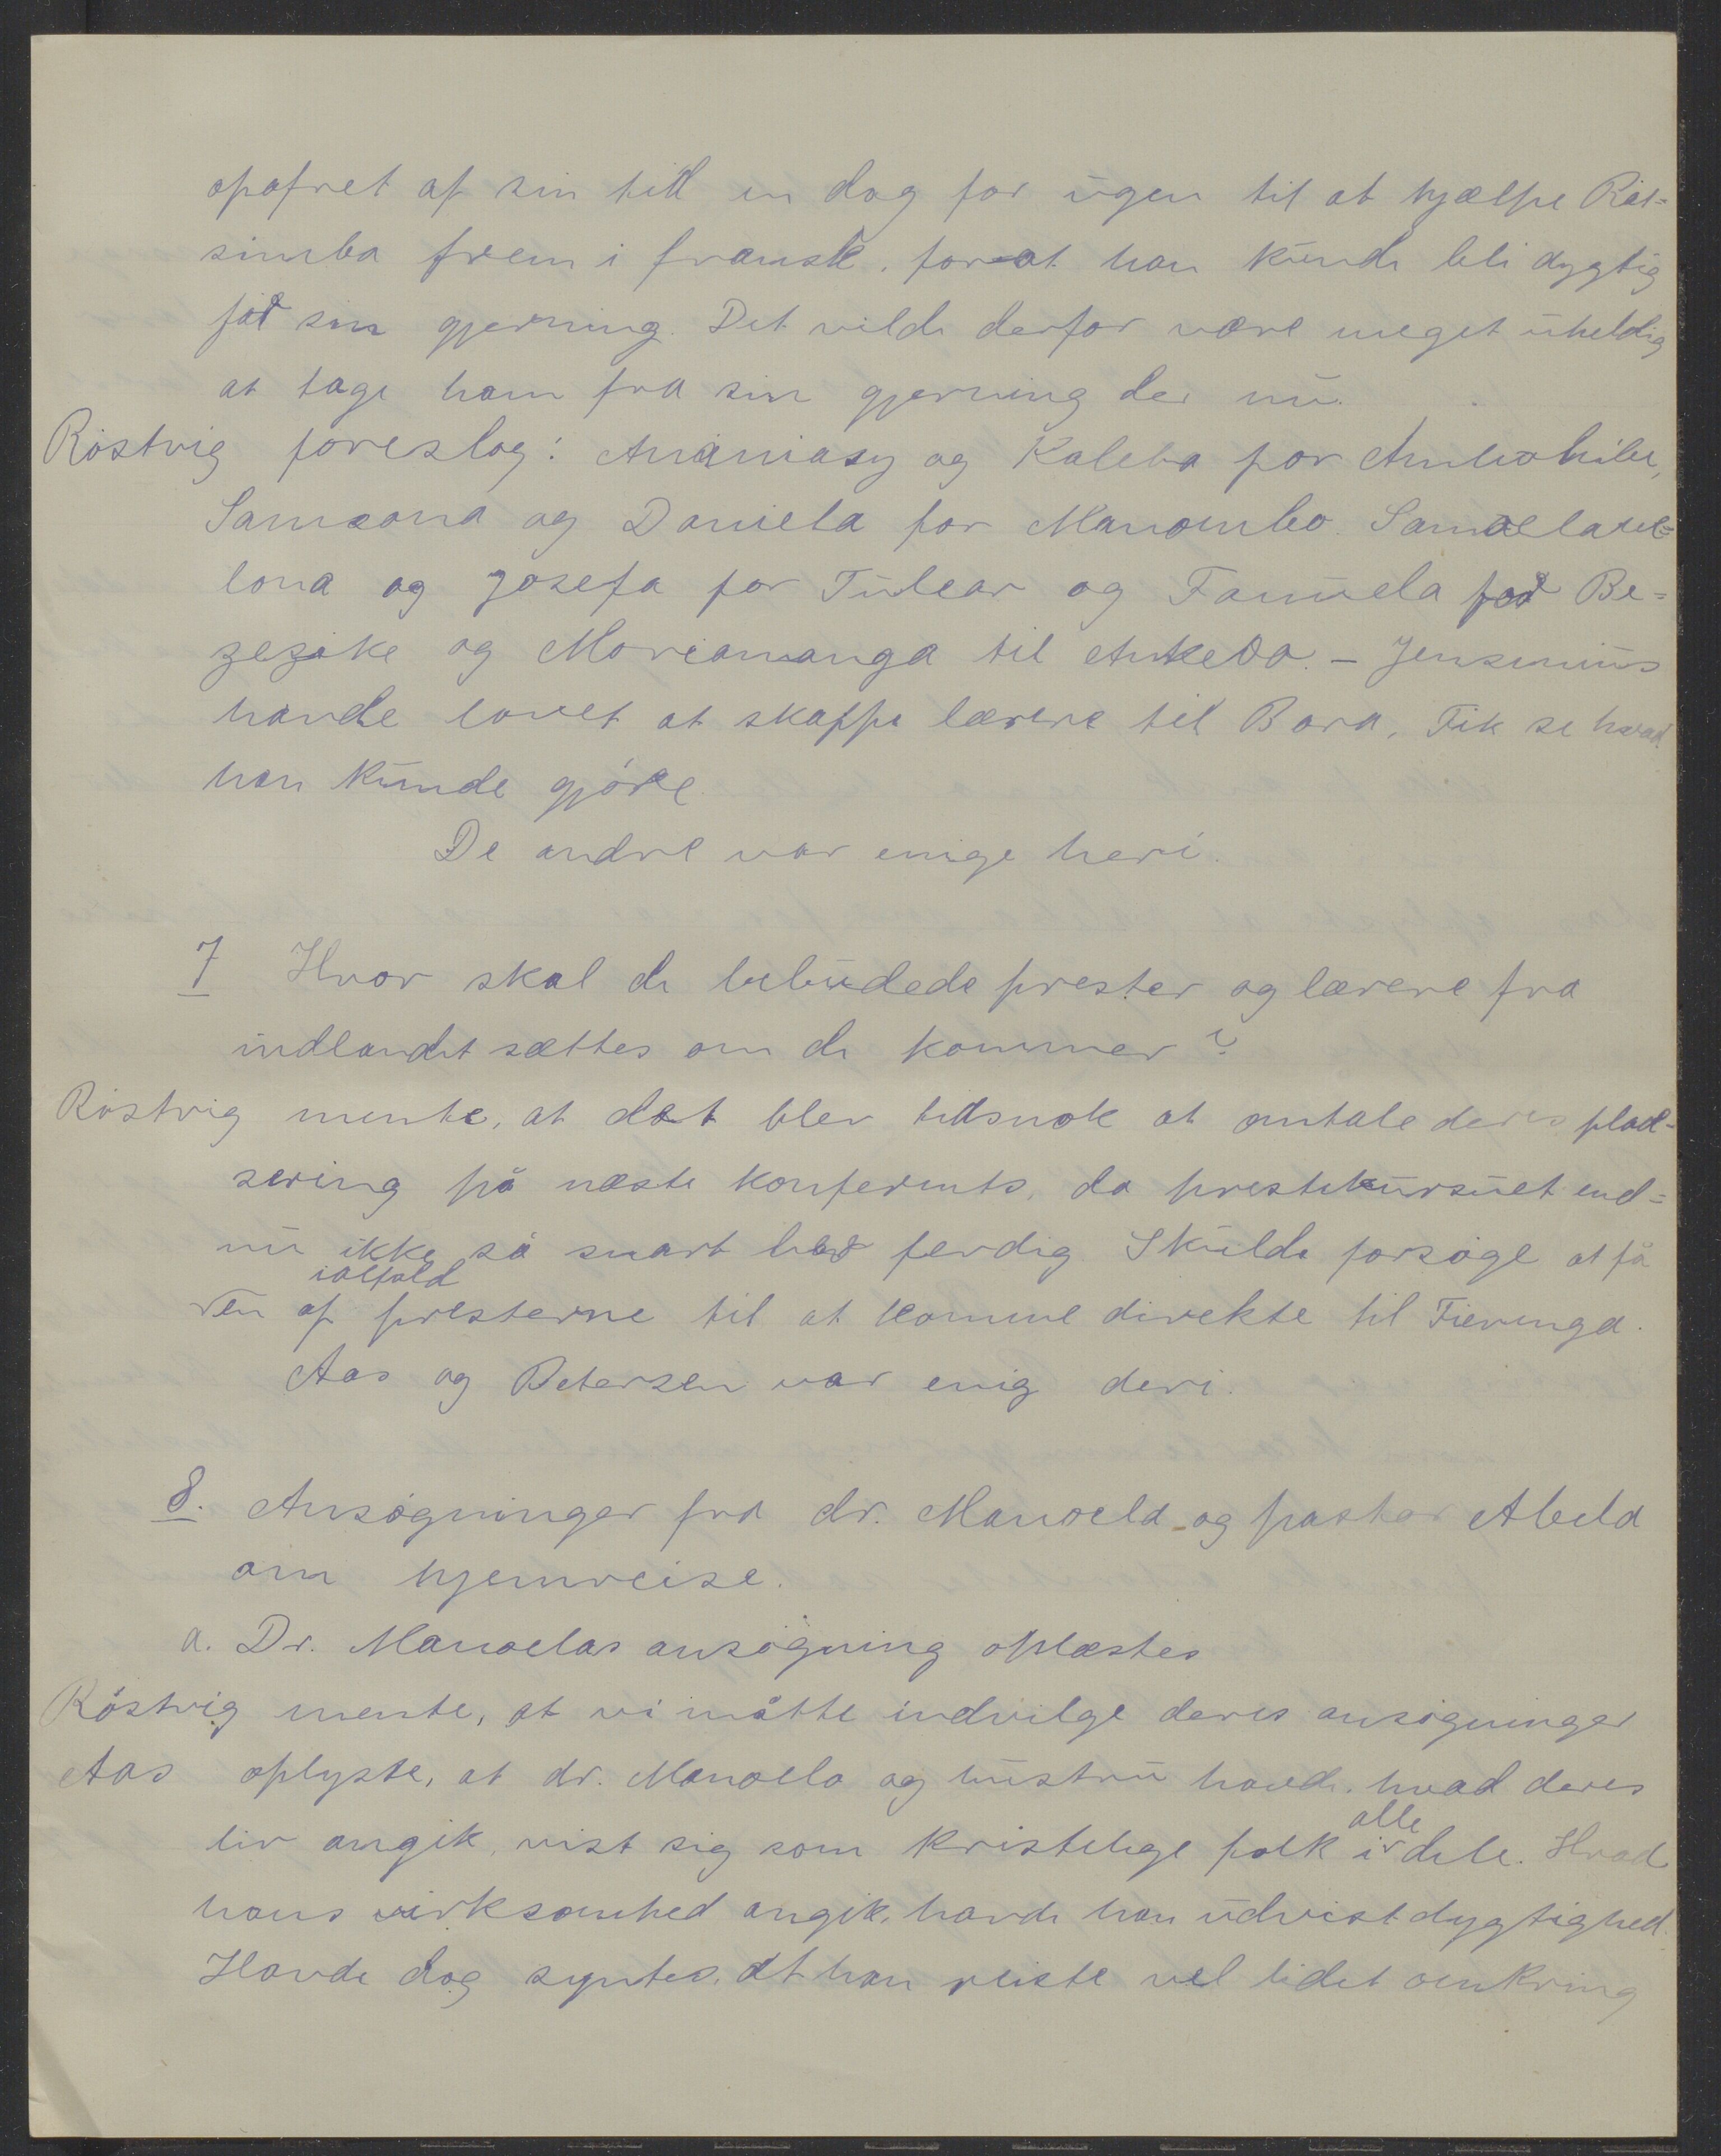 opofret af sin tid en dag for ugen til at hjælpe Rat-
simba frem i fransk, forat han kunde bli dygtig
for sin gjerning. Det vilde derfor være meget uheldig
at tage ham fra sin gjerning der nu.
Röstvig foreslog: Ananiasy og Kaleba for Ambohibe,
Samsona og Daniela for Manombo. Samoelavel-
lona og Josefa for Tulear og Fanuela for Be-
zezike og Moriamanga til Ankeva. – Jensenius
havde lovet at skaffe lærere til Bara, Fik se hvad
han kunde gjøre.
De andre var enige heri.
7 Hvor skal de bebudede prester og lærere fra
indlandet sættes om de kommer?
Röstvig mente, at det blev tidsnok at omtale deres plad-
sering på næste konferents, da prestekursuet end-
nu ikke så snart blev ferdig Skulde forsøge at få
ialfald
en af presterne til at komme direkte til Fierenga.
Aas og Petersen var enig deri.
8. Ansøgninger fra dr. Manoela og pastor Abela
om hjemreise.
a. Dr. Manoelas ansøgning oplæstes
Röstvig mente, at vi måtte indvilge deres ansøgninger
Aas oplyste, at dr. Manoela og hustru havde, hvad deres
alle
liv angik, vist sig som kristelige folk i dele. Hvad
hans virksomhed angik, havde han udvist dygtighed.
Havde dog syntes, at han reiste vel lidet omkring